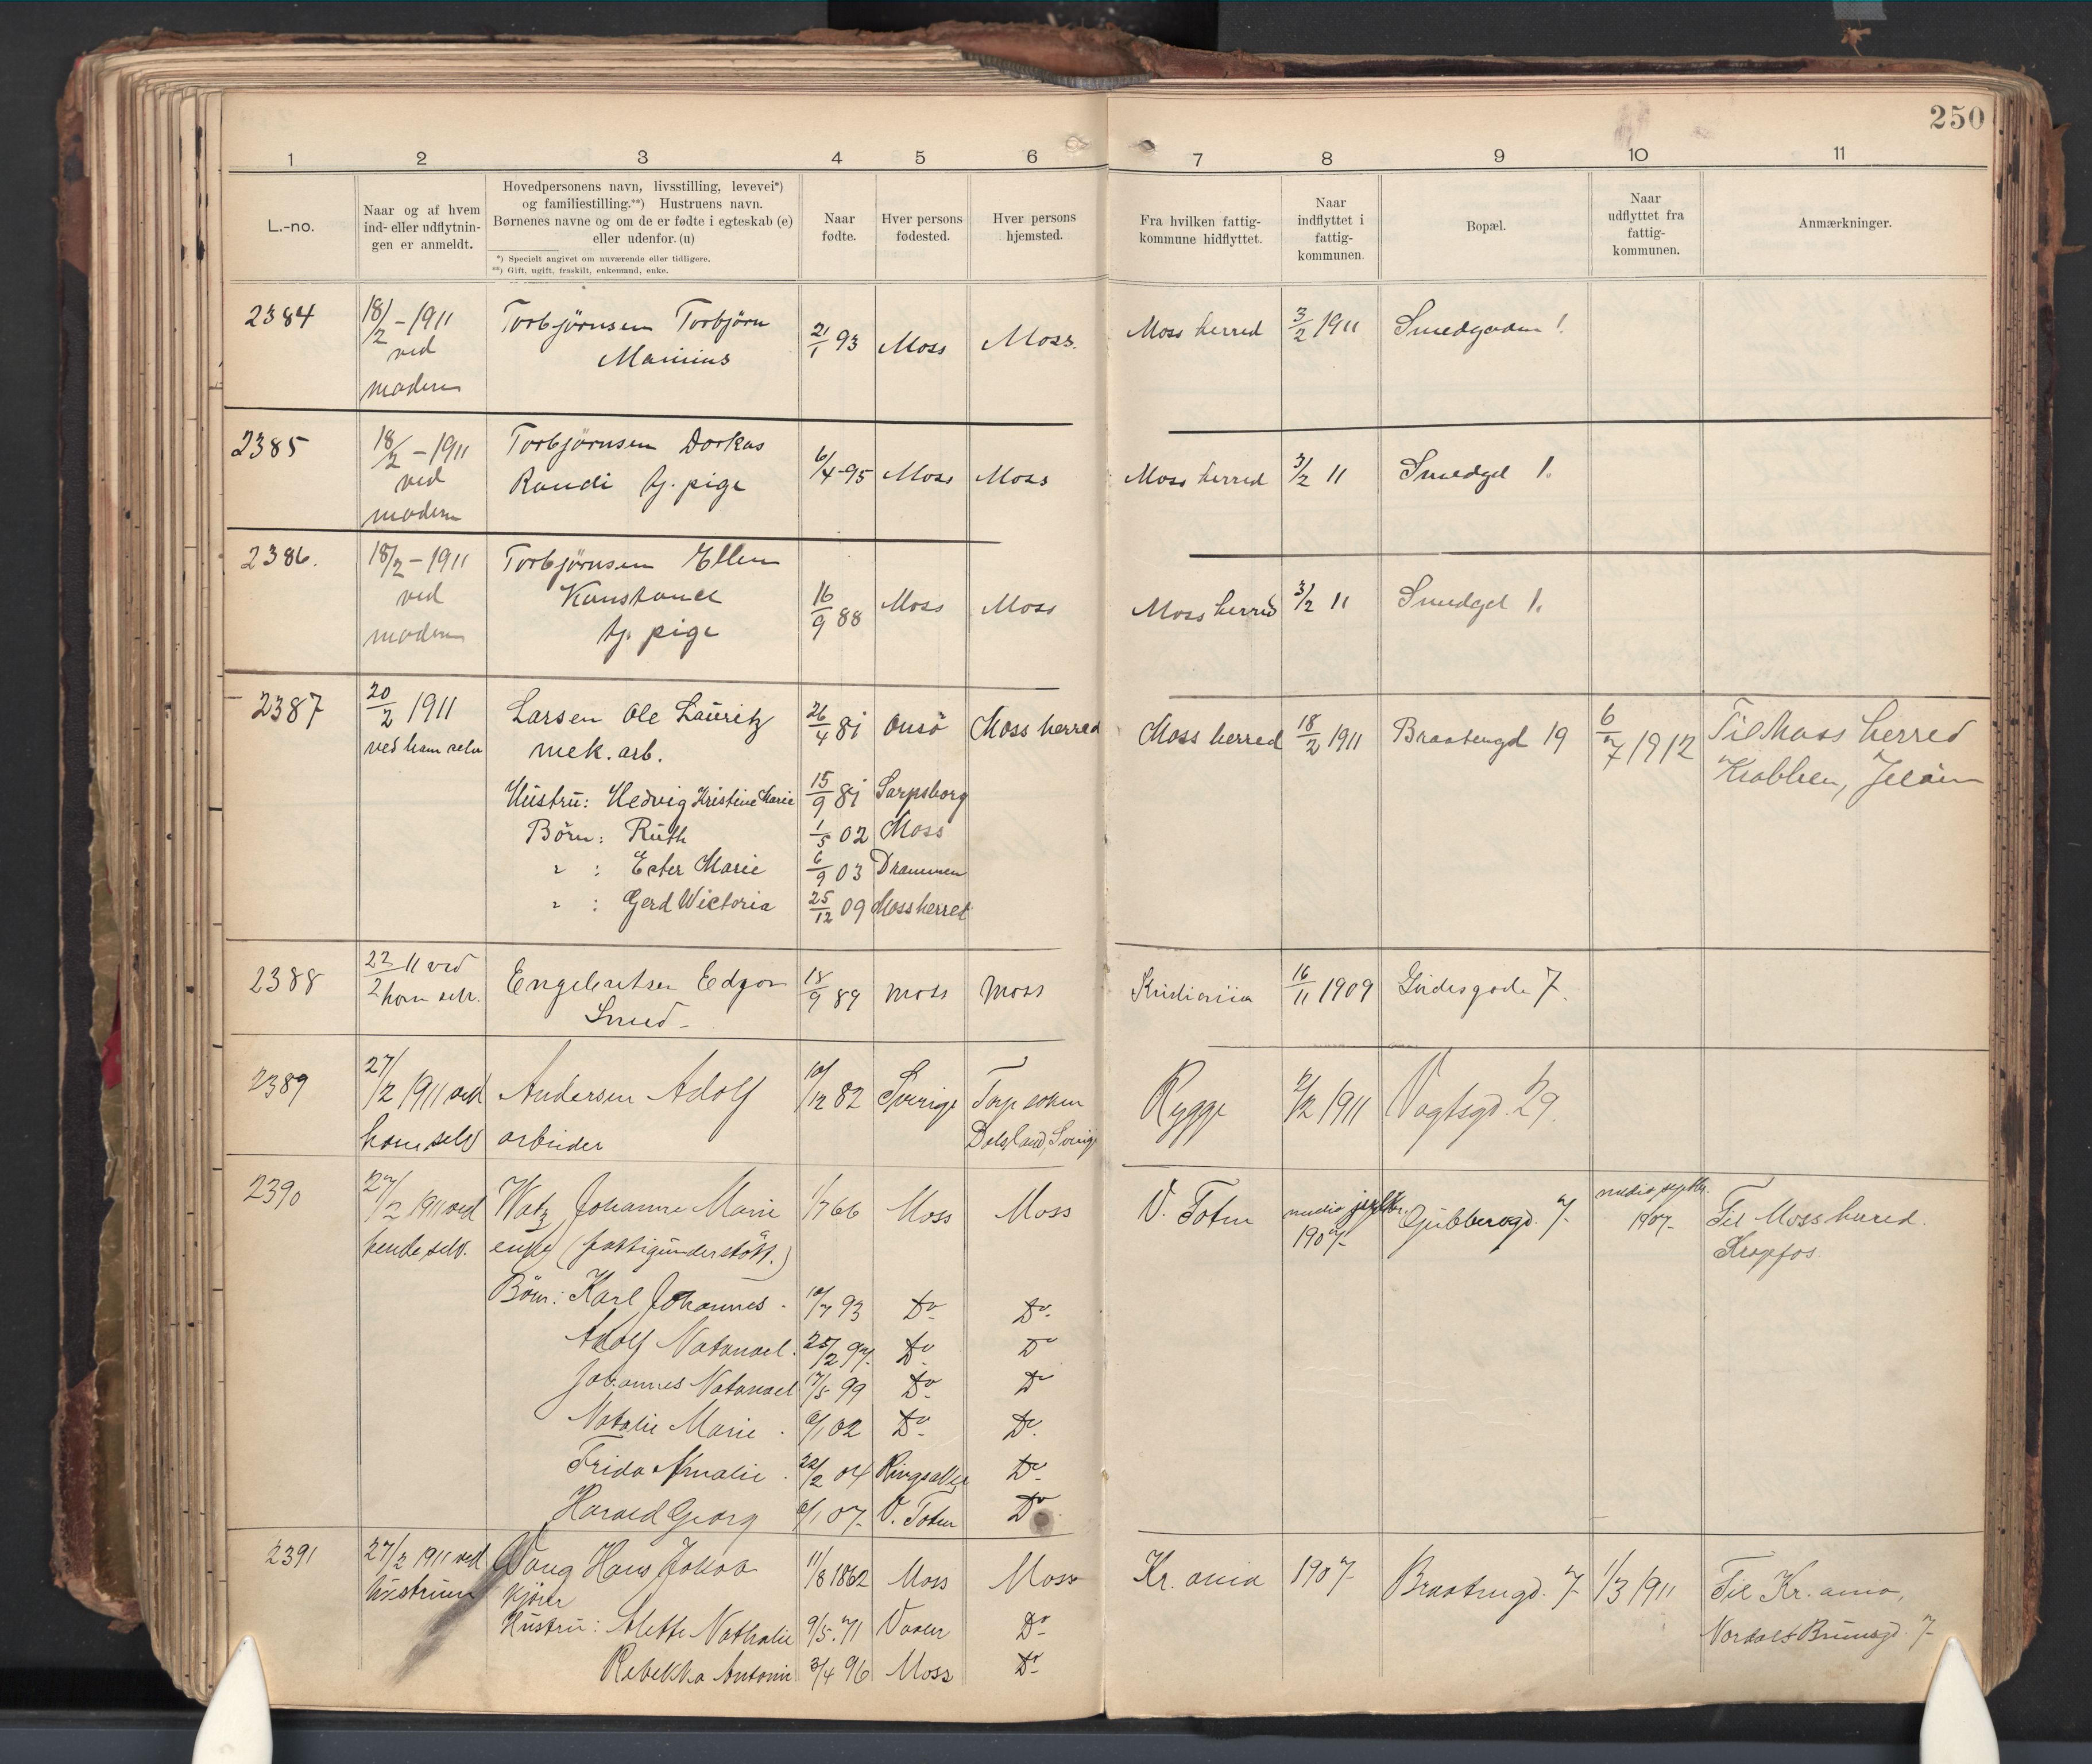 250
1 2 3 4 5 6 7 8 9 10 11
L.-no.
Naar og af hvem ind- eller udflytnin- gen er anmeldt.
Hovedpersonens navn, livsstilling, levevei*)
og familiestilling.**) Hustruens navn.
Børnenes navne og om de er fødte i egteskab (e)
eller udenfor. (u)
*) Specielt angivet om nuværende eller tidligere.
**) Gift, ugift, fraskilt, enkemand, enke.
Naar fødte.
Hver persons fødested.
Hver persons hjemsted.
Fra hvilken fattig- kommune hidflyttet.
Naar indflyttet i fattig- kommunen.
Bopæl.
Naar udflyttet fra fattig- kommunen.
Anmærkninger.
2384 18/2 - 1911 Torbjørnsen Torbjørn 21/1 93 Moss Moss. Moss herred 3/2 1911 Smedgaden 1.
ved Marinius
moderen
2385 18/2 - 1911 Torbjørnsen Dorkas 6/4-95 Moss Moss Moss herred 3/2 11 Smedgd 1.
ved Randi tj. pige
moderen
2386. 18/2 - 1911 Torbjørnsen Ellen
ved Konstance 16/9 88 Moss Moss Moss herred 3/2 11 Smedgd 1.
moderen tj. pige
2387 20/2 1911 Larsen Ole Lauritz 26/4 81 Onsö Moss herred Moss herred 18/2 1911 Braatengd 19 6/7 1912 Til Moss herred
ved ham selv mek. arb. Krabben, Jeløen
Hustru: Hedvig Kristine Marie 15/9 81 Sarpsborg
Børn: Ruth 1/5 02 Moss
" : Ester Marie 6/9 03 Drammen
" : Gerd Wictoria 25/12 09 Moss herred
2388 22/2 11 ved Engebretsen Edgar 18/9 89 Moss Moss Kristiania 16/11 1909 7.
ham selv. Smed -
2389 27/2 1911 ved Andersen Adolf 10/12 82 Sverige Torp soken Rygge 2/2 1911 Vogtsgd. 29.
ham selv arbeider Dalsland, Sverige
2390 27/2 1911 ved Watz Johanne Marie 1/7 66 Moss Moss V. Toten medio 1907 Gubberogd. 7 medio septbr. 1907 Til Moss herred.
hende selv. enke (fattigunderstøtt.) Krapfos.
Børn: Karl Johannes. 10/7 93 Do Do
Adolf Natanael. 25/2 97. Do Do
Johannes Natanael 17/5 99 Do Do
Natalie Marie. 6/1 02 Do Do
Frida Amalie. 22/2 04 Ringsaker Do
Harald Georg 6/1 07. V. Toten Do
2391 27/2 1911 ved Wang Hans Jakob 11/8 1862 Moss Moss Kr.ania 1907 Braatengd. 7 1/3 1911 Til Kr.ania,
hustruen kjører Nordahl Brunsgd. 7
Hustru: Alette Nathalie 9/5. 71 Vaaler Do
Rebekka Antonie 3/4 96 Moss Do